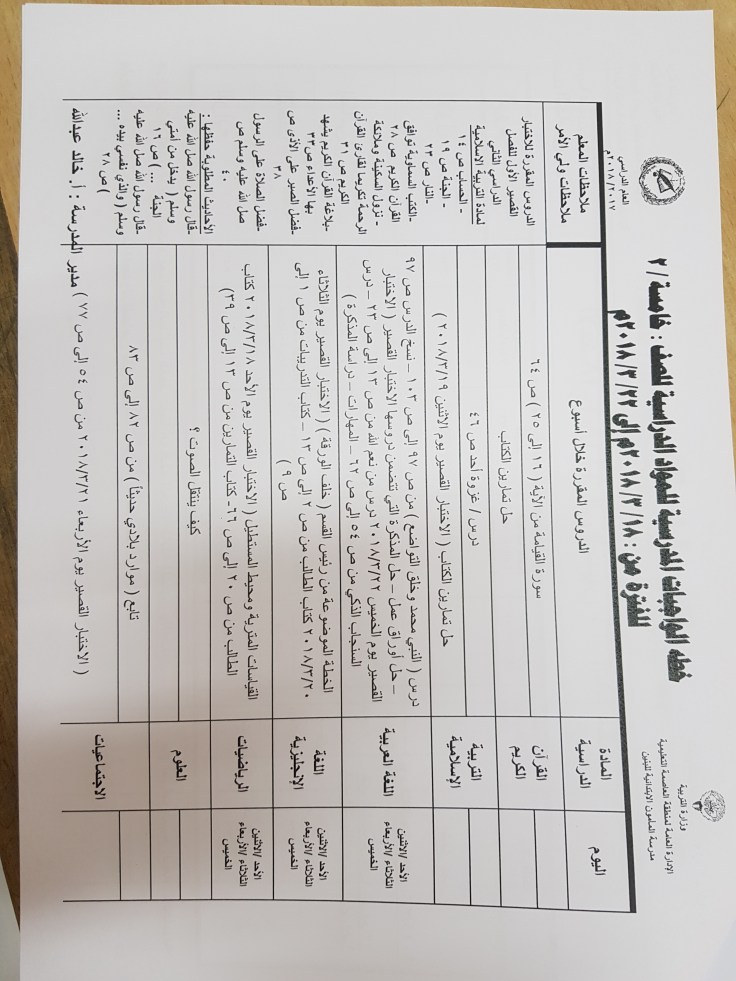 وزارة التربية
الإدارة العامة لمنطقة العاصمة التعليمية
مدرسة المأمون الابتدائية للبنين
خطة الواجبات المدرسية للمواد الدراسية للصف : خامسة / ٢
للفترة من : ١٨ /٣ /٢٠١٨م إلى ٢٢ /٣ /٢٠١٨م
العام الدراسي
٢٠١٧/ ٢٠١٨م
اليوم
المادة الدراسية
الدروس المقررة خلال أسبوع
ملاحظات المعلم
ملاحظات ولي الأمر
القرآن
الكريم
سورة القيامة من الآية ( ١٦ إلى ٢٥ ) ص ٦٤
حل تمارين الكتاب
التربية
الإسلامية
درس / غزوة أحد ص ٤٦
حل تمارين الكتاب ( الاختبار القصير يوم الاثنين ٢٠١٨/٣/١٩ )
الأحد /الاثنين
الثلاثاء /الأربعاء
الخميس
اللغة العربية
درس ( النبي محمد وخلق التواضع ) من ص ٩٧ إلى ص ١٠٣ – نسخ الدرس ص ٩٧
– حل أوراق عمل – حل المذكرة التي تتضمن دروسها الاختبار القصير ( الاختبار
القصير يوم الخميس ٢٠١٨/٣/٢٢ درس من نعم الله من ص ١٣ إلى ص ٢٣ – درس
السنجاب الذكي من ص ٥٤ إلى ص ٦٢ – المهارات – دراسة المذكرة )
الأحد /الاثنين
الثلاثاء /الأربعاء
الخميس
اللغة
الإنجليزية
الخطة الموضوعة من رئيس القسم ( خلف الورقة ) ( الاختبار القصير يوم الثلاثاء
٢٠١٨/٣/٢٠ كتاب الطالب من ص ٢ إلى ص ١٣ – كتاب التدريبات من ص ١ إلى
ص ٩ )
الأحد /الاثنين
الثلاثاء /الأربعاء
الخميس
الرياضيات
القياسات المترية ومحيط المستطيل ( الاختبار القصير يوم الأحد ٢٠١٨/٣/١٨ كتاب
الطالب من ص ٢٠ إلى ص ٦٦- كتاب التمارين من ص ١٣ إلى ص ٣٩)
العلوم
كيف ينتقل الصوت ؟
الاجتماعيات
تابع ( موارد بلادي حديثاً ) من ص ٨٢ إلى ص ٨٣
( الاختبار القصير يوم الأربعاء ٢٠١٨/٣/٢١ من ص ٥٤ إلى ص ٧٧ )
الدروس المقررة للاختبار
القصير الأول للفصل
الدراسي الثاني
لمادة التربية الإسلامية
- الحساب ص ١٤
- الجنة ص ١٩
-النار ص ٢٣
-الكتب السماوية توافق
القرآن الكريم ص ٢٨
- نزول السكينة وملائكة
الرحمة تكريما لقارئ القرآن
الكريم ص ٣١
-بلاغة القرآن الكريم يشهد
بها الأعداء ص ٣٣
-فضل الصبر على الأذى ص
٣٨
-فضل الصلاة على الرسول
صل الله عليه وسلم ص
٤٠
الأحاديث المطلوبة حفظها :
-قال رسول الله صل الله عليه
وسلم ( يدخل من أمتي
الجنة ... ) ص ١٦
-قال رسول الله صل الله عليه
وسلم ( والذي نفسي بيده ...
) ص ٢٨
مدير المدرسة : أ. خالد عبدالله